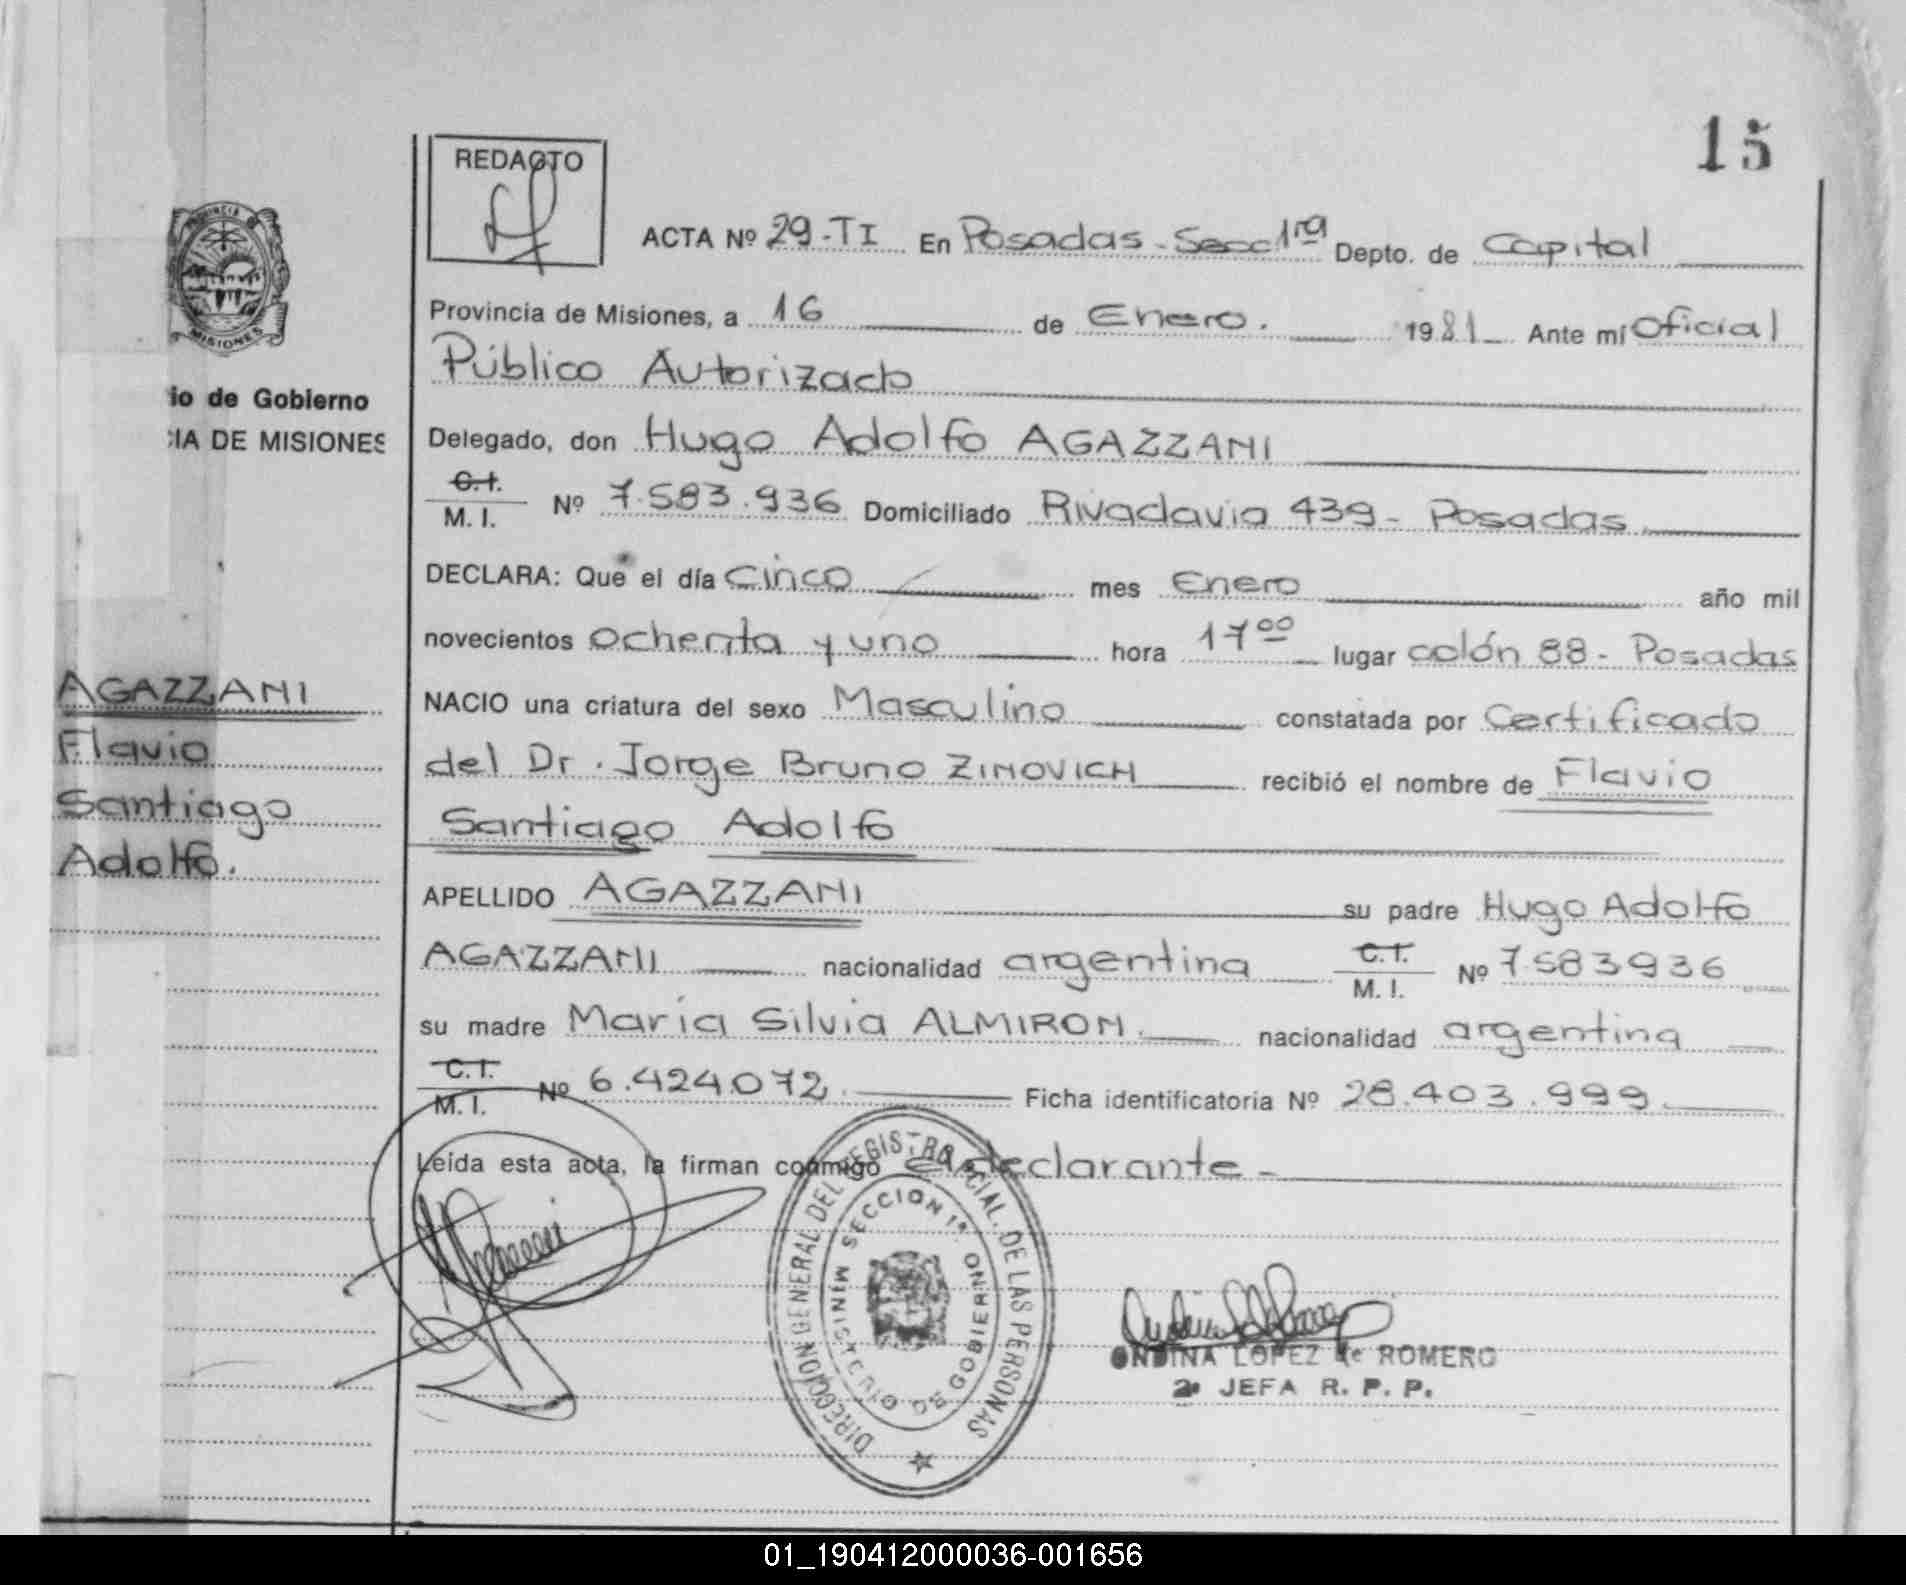 15
REDACTO
ACTA Nº 29-TI En Posadas-Secc 1ra Depto. de Capital
PROVINCIA DE MISIONES
Provincia de Misiones, a 16 de Enero. 1981 Ante mí Oficial
Público Autorizado
io de Gobierno
CIA DE MISIONES
Delegado, don Hugo Adolfo AGAZZANI
C.I.
M. I. Nº 7.583.936 Domiciliado Rivadavia 439- Posadas
DECLARA: Que el día Cinco mes Enero año mil
novecientos ochenta y uno hora 17 00 lugar colón 88- Posadas
AGAZZANI
Flavio
Santiago
Adolfo.
NACIO una criatura del sexo Masculino constatada por Certificado
del Dr. Jorge Bruno ZINOVICH recibió el nombre de Flavio
Santiago Adolfo
APELLIDO AGAZZANI su padre Hugo Adolfo
AGAZZANI nacionalidad argentina C.I. M. I. Nº 7.583936
su madre María Silvia ALMIRON. nacionalidad argentina
C.I.
M. I. Nº 6.424.072 Ficha identificatoria Nº 28.403.999
Leída esta acta, la firman conmigo el declarante-
DIRECCION GENERAL DEL REGISTRO PCIAL. DE LAS PERSONAS
SECCION 1ª
MINISTERIO DE GOBIERNO
ONDINA LOPEZ de ROMERO
2ª JEFA R. P. P.
01_190412000036-001656